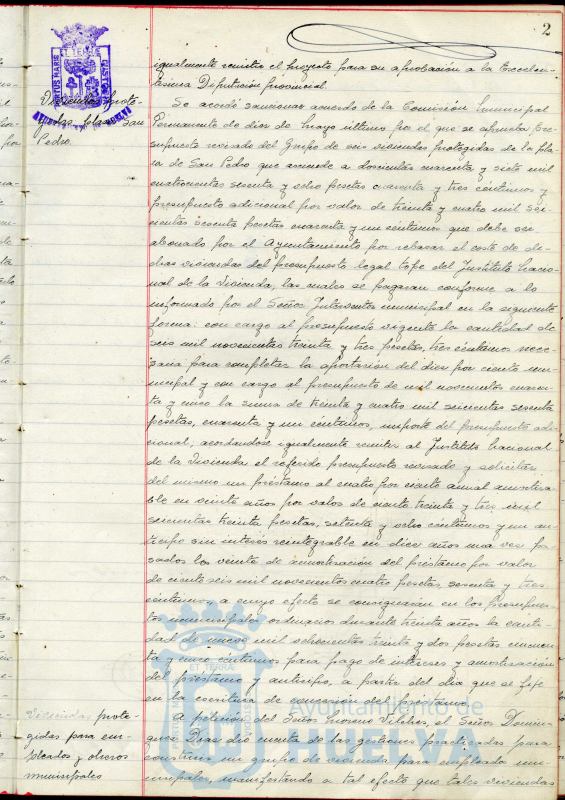 2
igualmente remitir el proyecto para su aprobación a la Excelen-
tísima Diputación provincial.
Viviendas prote-
gidas plaza San
Pedro.
Se acordó sancionar acuerdo de la Comisión Municipal
Permanente de dios de Mayo último por el que se aprueba pre-
supuesto revisado del Grupo de seis viviendas protegidas de la pla-
za de San Pedro que asciende a doscientas cuarenta y siete mil
cuatrocientas sesenta y ocho pesetas cuarenta y tres céntimos y
presupuesto adicional por valor de treinta y cuatro mil sei-
cientas sesenta pesetas cuarenta y un céntimos que debe ser
abonado por el Ayuntamiento por rebasar el coste de di-
chas viviendas del presupuesto legal tope del Instituto Nacio-
nal de la Vivienda, las cuales se pagaran conforme a lo
informado por el Señor Interventor municipal en la siguiente
forma: con cargo al presupuesto vigente la cantidad de
seis mil novecientas treinta y tres pesetas, tres céntimos nece-
saria para completar la aportación del diez por ciento mu-
nicipal y con cargo al presupuesto de mil novecientos cuaren-
ta y cinco la suma de treinta y cuatro mil seicientas sesenta
pesetas, cuarenta y un céntimos, importe del presupuesto adi-
cional, acordándose igualmente remitir al Instituto Nacional
de la Vivienda el referido presupuesto revisado y solicitar
del mismo un préstamo al cuatro por ciento anual amortiza-
ble en veinte años por valor de ciento treinta y tres mil
seicientas treinta pesetas, setenta y ocho céntimos y un an-
ticipo sin interés reintegrable en diez años una vez pa-
sados los veinte de amortización del préstamo por valor
de ciento seis mil novecientas cuatro pesetas, sesenta y tres
céntimos, a cuyo efecto se consignaran en los Presupues-
tos municipales ordinarios durante treinta años la canti-
dad de nueve mil ochocientas treinta y dos pesetas cincuen-
ta y cinco céntimos para pago de intereses y amortización
del préstamo y anticipo, a partir del día que se fije
en la escritura de concesión del préstamo.
Viviendas prote-
gidas para em-
pleados y obreros
municipales
A petición del Señor Moreno Vilches, el Señor Domin-
guez Diaz dió cuenta de las gestiones practicadas para
construir un grupo de vivienda para empleado mu-
nicipales, manifestando a tal efecto que tales viviendas
Ayuntamiento de
HUELVA